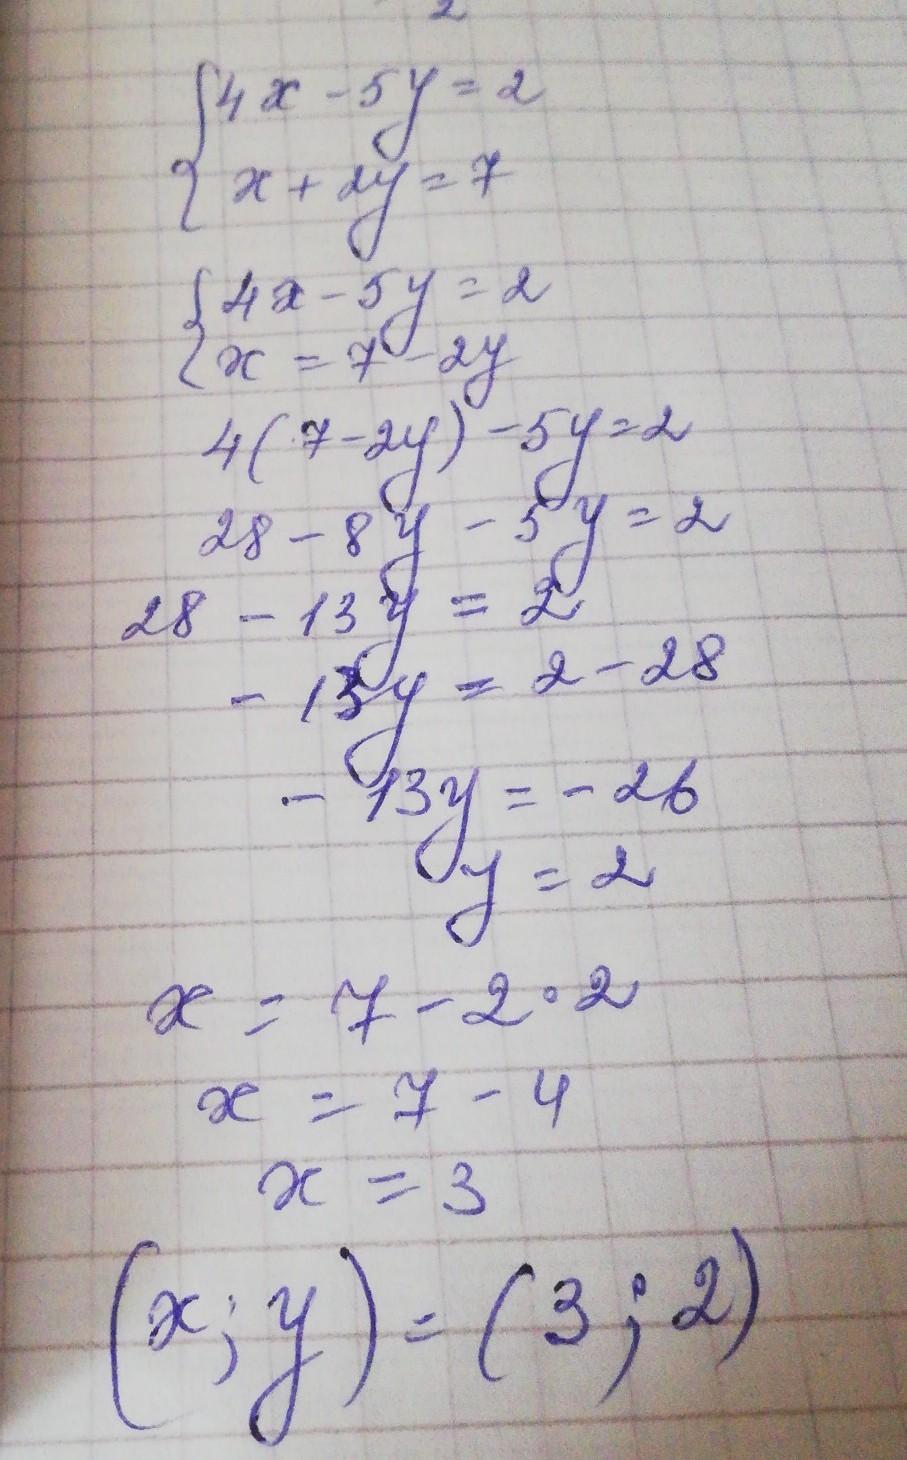 2
4x - 5y = 2
x + 2y = 7
4x - 5y = 2
x = 7 - 2y
4(7 - 2y) - 5y = 2
28 - 8y - 5y = 2
28 - 13y = 2
- 13y = 2 - 28
- 13y = - 26
y = 2
x = 7 - 2 · 2
x = 7 - 4
x = 3
(x; y) = (3; 2)